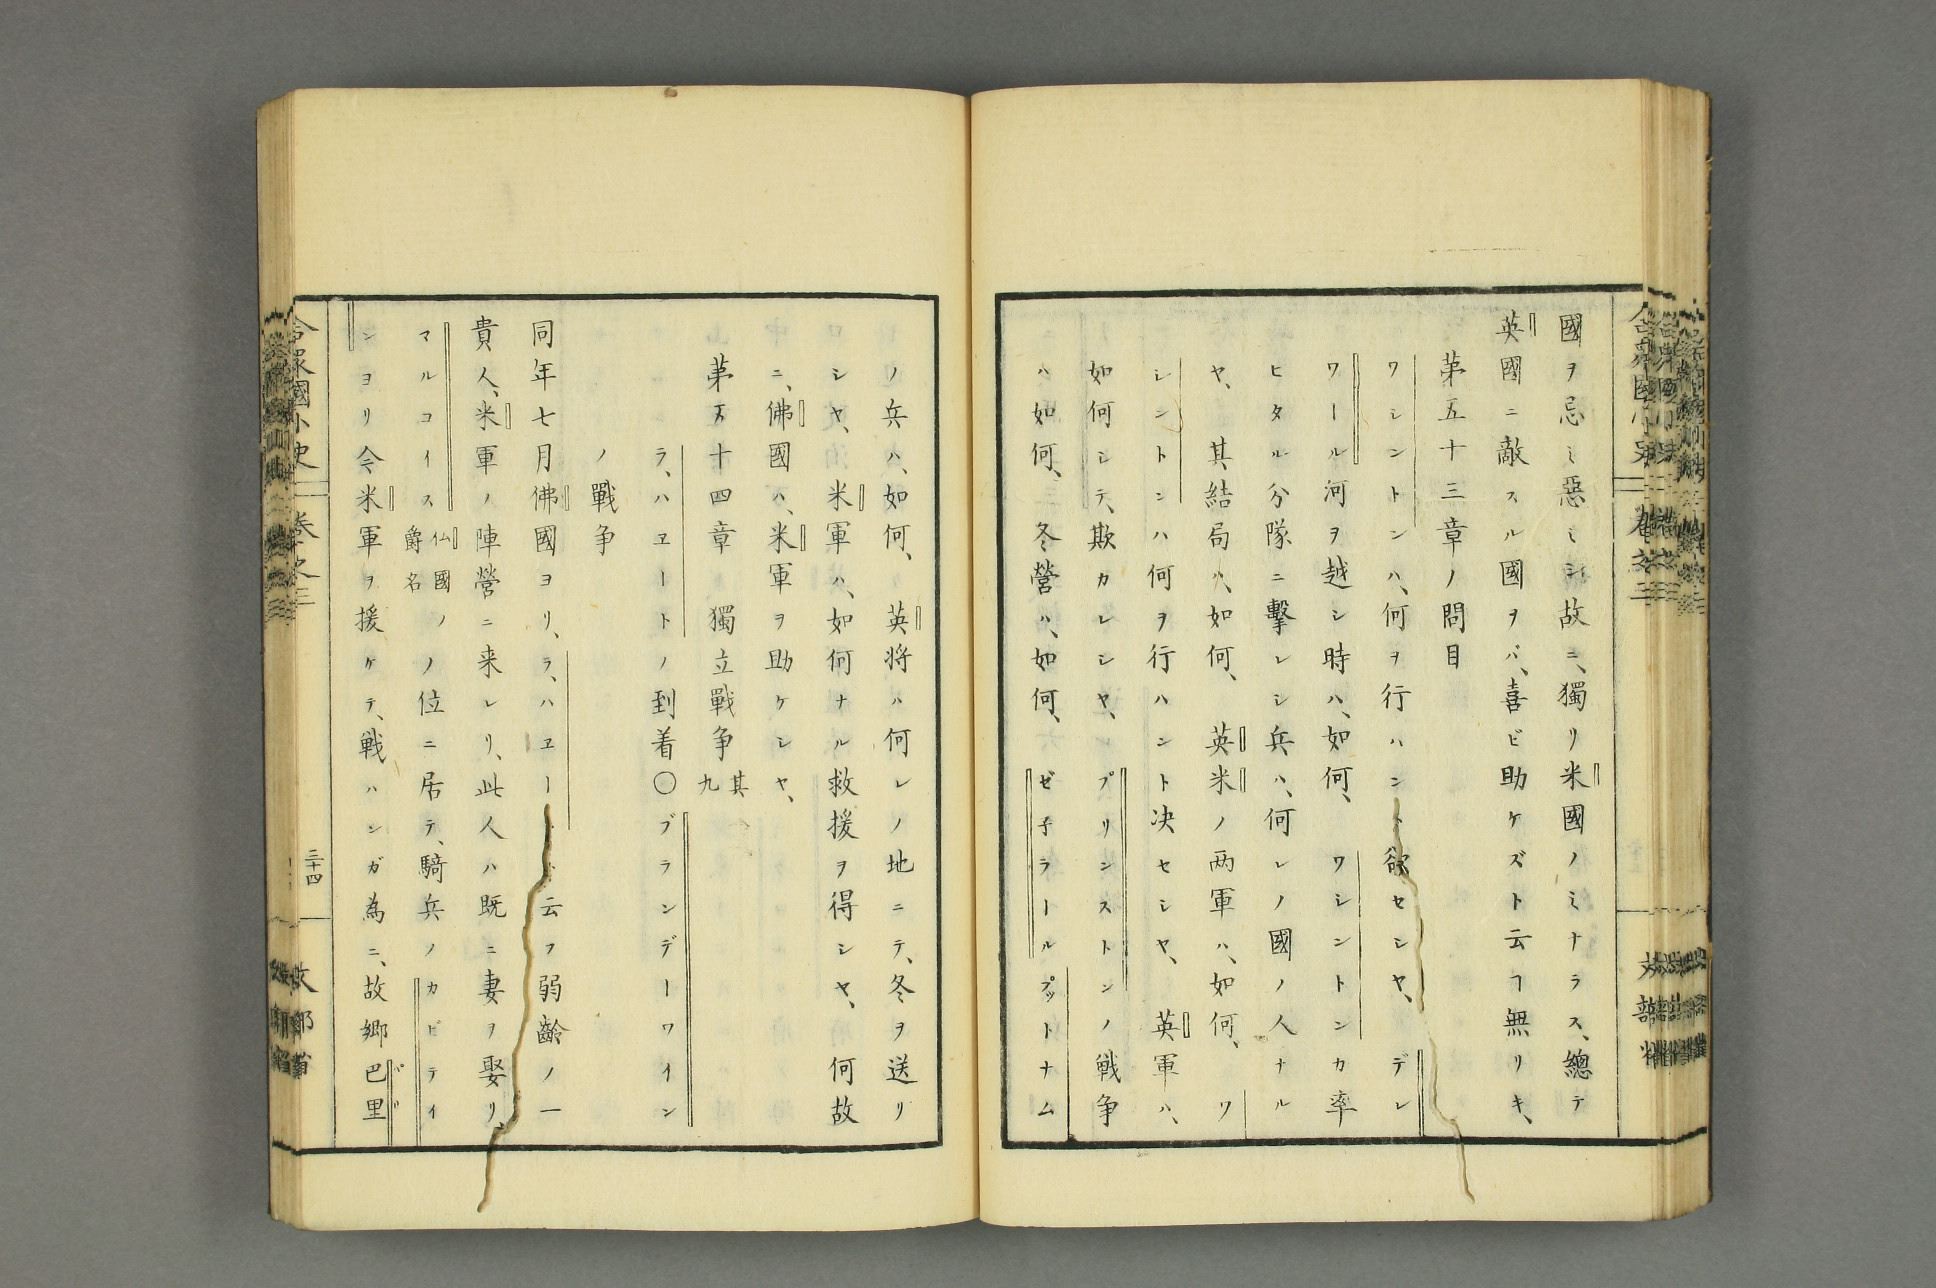 國ヲ忌ミ惡ミシ故ニ、獨リ米國ノミナラス、總テ
英國ニ敵スル國ヲバ、喜ビ助ケズト云フ無リキ、
第五十三章ノ問目
ワシントンハ、何ヲ行ハント欲セシヤ、デレ
ワール河ヲ越シ時ハ、如何、ワシントンカ率
ヒタル分隊ニ擊レシ兵ハ、何レノ國ノ人ナル
ヤ、其結局ハ、如何、英米ノ両軍ハ、如何、ワ
シントンハ何ヲ行ハント决セシヤ、英軍ハ、
如何シテ、欺カレシヤ、プリンストンノ戦争
ハ如何、冬營ハ、如何、ゼ子ラールプットナム
ノ兵ハ、如何、英将ハ何レノ地ニテ、冬ヲ送リ
シヤ、米軍ハ、如何ナル救援ヲ得シヤ、何故
ニ、佛國ハ、米軍ヲ助ケシヤ、
第五十四章 獨立戰争 其九
ラ、ハヱートノ到着〇ブランデーワイン
ノ戰争
同年七月佛國ヨリ、ラ、ハヱートト云フ弱齡ノ一
貴人、米軍ノ陣營ニ来レリ、此人ハ既ニ妻ヲ娶リ、
マルコイス仏國ノ爵名ノ位ニ居テ、騎兵ノカピテイ
ンヨリ今米軍ヲ援ケテ、戦ハンガ為ニ、故郷巴里
合衆國小史 卷之三
三十四
文部省